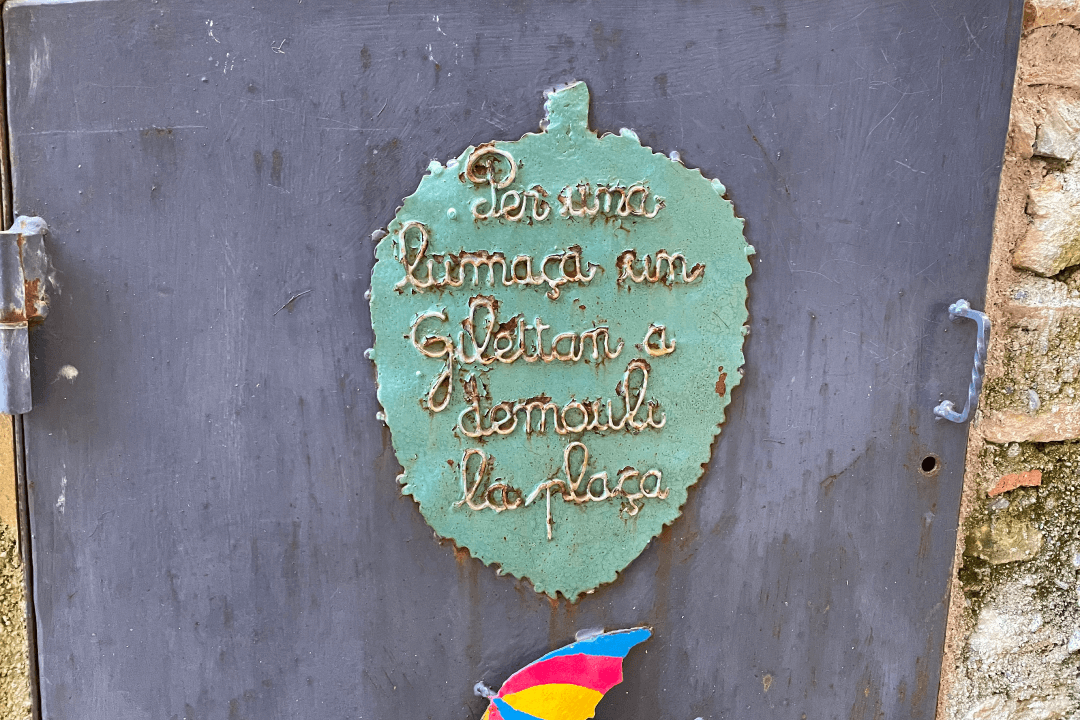 Per una
lumaça un
Gilettan a
demouli
la plaça